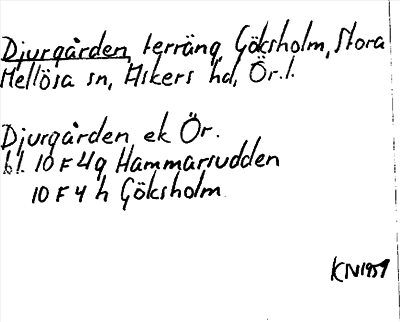 Djurgården, terräng, Göksholm, Stora
Mellösa sn, Askers hd, Ör.l.
Djurgården ek Ör.
bl. 10 F 4g Hammarsudden
10 F 4 h Göksholm
KN1959